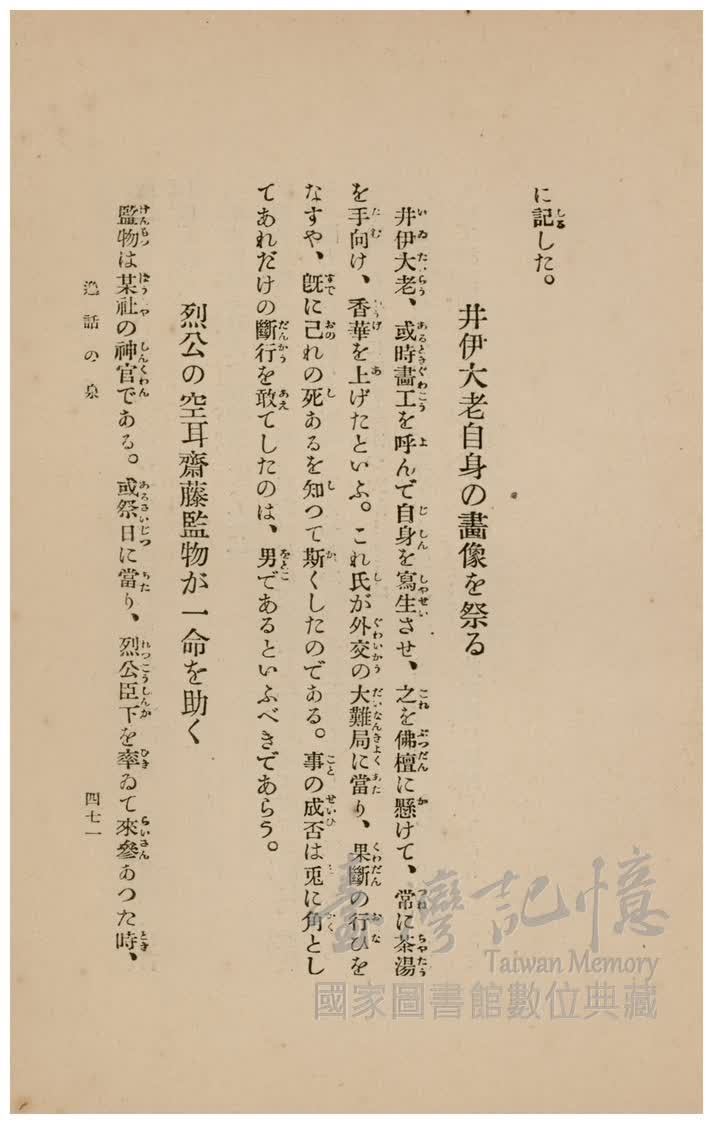 に記した。
井伊大老自身の畫像を祭る
井伊大老、或時畵工を呼んで自身を寫生させ、之を佛檀に懸けて、常に茶湯
を手向け、香華を上げたといふ。これ氏が外交の大難局に當り、果斷の行ひを
なすや、既に己れの死あるを知つて斯くしたのである。事の成否は兎に角とし
てあれだけの斷行を敢てしたのは、男であるといふべきであらう。
烈公の空耳齋藤監物が一命を助く
監物は某社の神官である。或祭日に當り、烈公臣下を率ゐて來參あつた時、
逸話の泉
四七一
臺灣記憶
Taiwan Memory
國家圖書館數位典藏